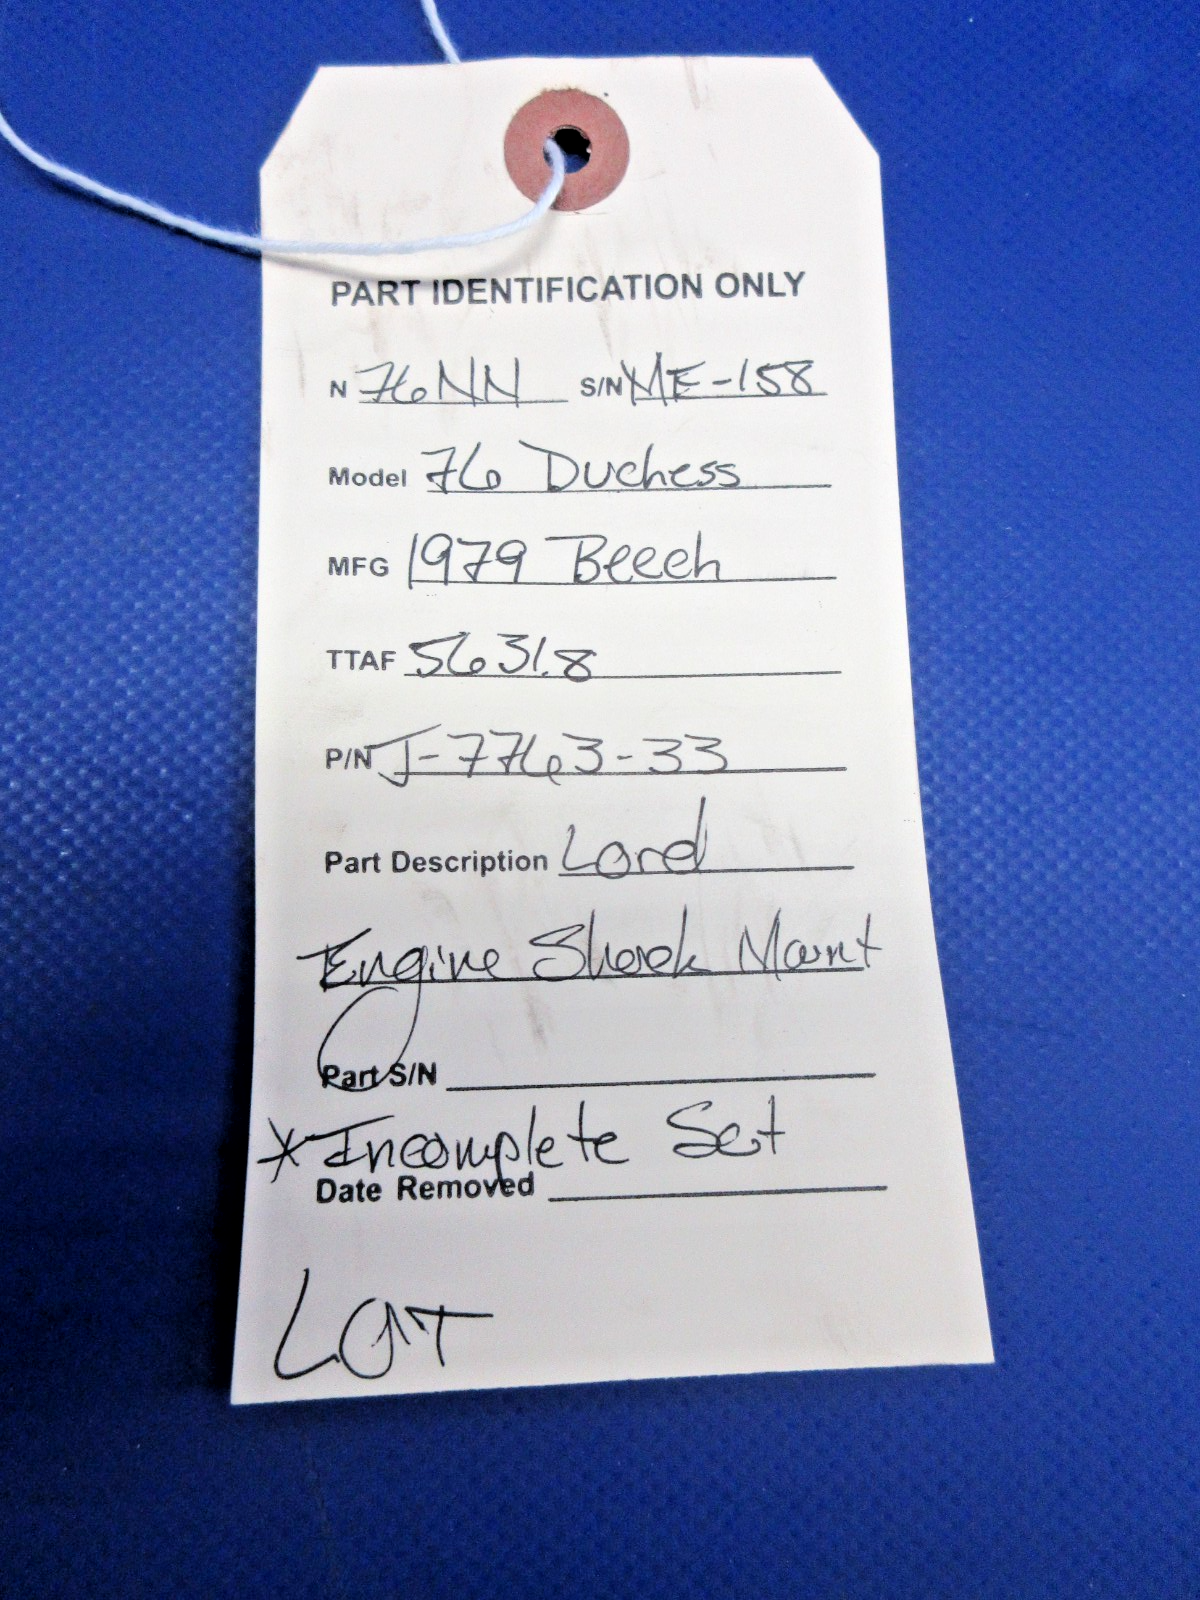 PART IDENTIFICATION ONLY
N 76NN S/N ME-158
Model 76 Duchess
MFG 1979 Beech
TTAF 5631.8
P/N J-7763-33
Part Description Lord
Engine Shock Mount
Part S/N
* Incomplete Set
Date Removed
LOT